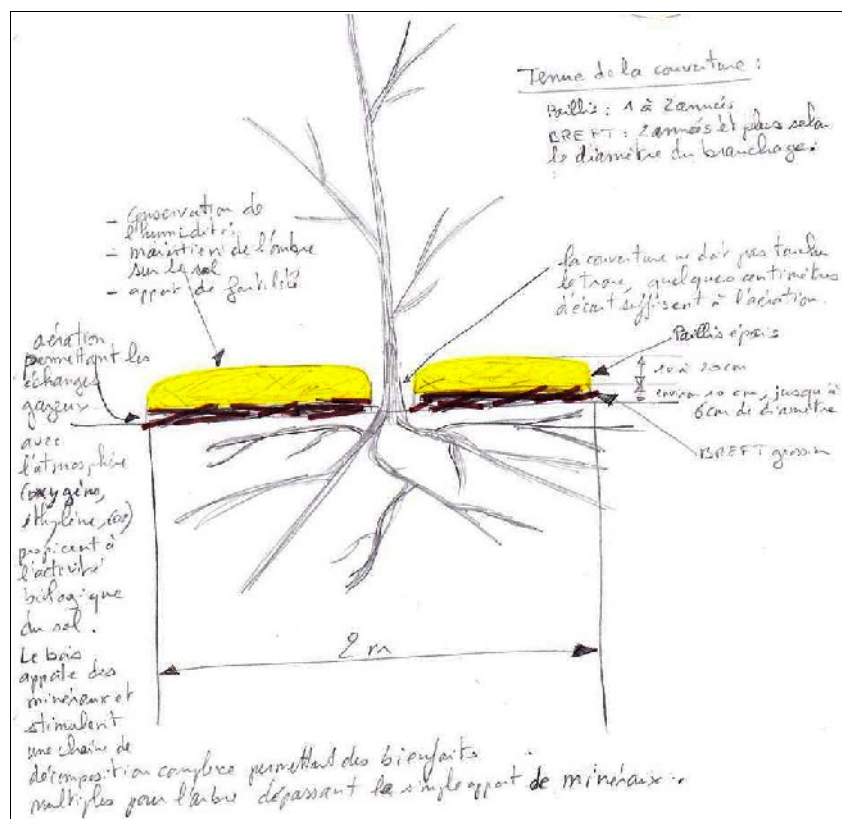 Tenue de la couverture :
Paillis : 1 à 2 années
BREFT : 2 années et plus selon
le diamètre du branchage.
- conservation de
l'humidité
- maintien de l'ombre
sur le sol
- apport de fertilité
la couverture ne doit pas toucher
le tronc, quelques centimètres
d'écart suffisent à l'aération.
Paillis épais
10 à 20 cm
environ 10 cm, jusqu'à
6cm de diamètre
BREFT grossier
aération
permettant les
échanges
gazeux
avec
l'atmosphère
(oxygène,
éthylène, co2)
propicent à
l'activité
biologique
du sol.
2 m
Le bois
apporte des
minéraux et
stimulent
une chaîne de
décomposition complexe permettant des bienfaits
multiples pour l'arbre dépassant le simple apport de minéraux...